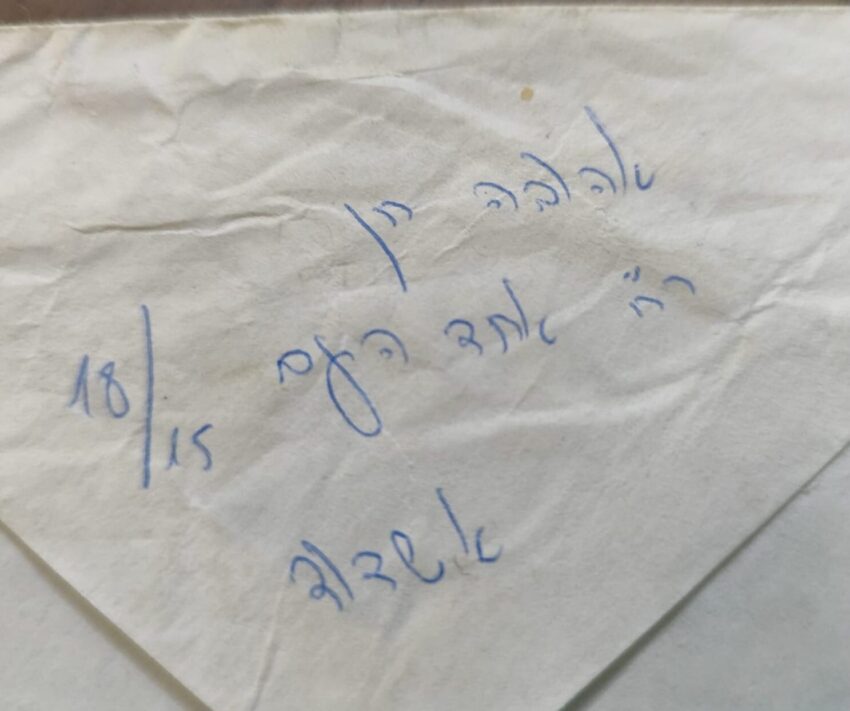 אהובה חן
רח' אחד העם 18/15
אשדוד